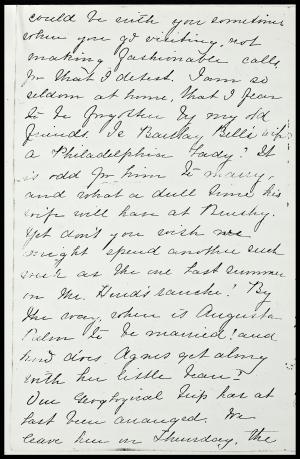 could be with you sometimes
when you go visiting, not
making fashionable calls
for that I detest. I am so
seldom at home, that I fear
to be forgotten by my old
friends. Is Barclay Bell's wife
a Philadelphia lady? It
is odd for him to marry,
and what a dull time his
wife will have at
Yet don't you wish we
might spend another such
week as the one last summer
on Mr. Hurd's ranche! By
the way, when is Augusta
to be married? and
how does Agnes get along
with her little bean?
Our Geological trip has at
last been arranged. We
leave here on Thursday, the